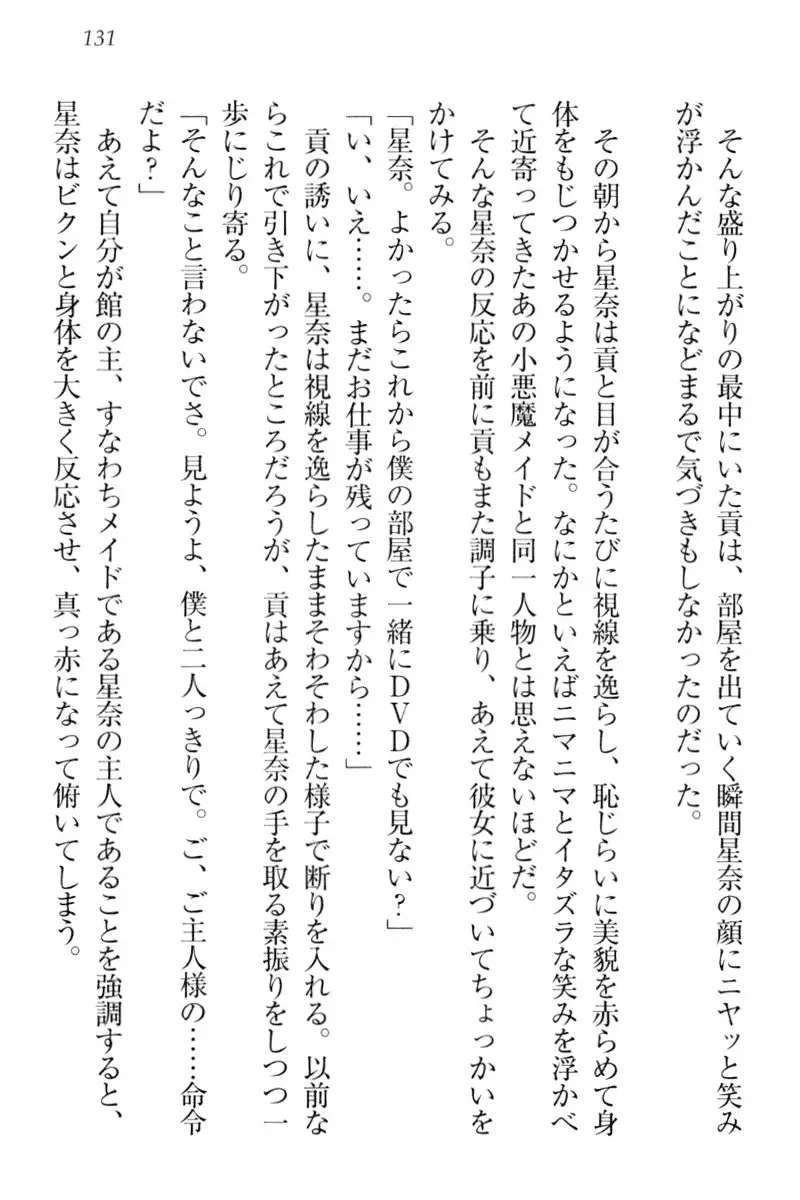 131
そんな盛り上がりの最中にいた貢は、部屋を出ていく瞬間星奈の顔にニヤッと笑み
が浮かんだことになどまるで気づきもしなかったのだった。
その朝から星奈は貢と目が合うたびに視線を逸らし、恥じらいに美貌を赤らめて身
体をもじつかせるようになった。なにかといえばニマニマとイタズラな笑みを浮かべ
て近寄ってきたあの小悪魔メイドと同一人物とは思えないほどだ。
そんな星奈の反応を前に貢もまた調子に乗り、あえて彼女に近づいてちょっかいを
かけてみる。
「星奈。よかったらこれから僕の部屋で一緒にＤＶＤでも見ない？」
「い、いえ……。まだお仕事が残っていますから……」
貢の誘いに、星奈は視線を逸らしたままそわそわした様子で断りを入れる。以前な
らこれで引き下がったところだろうが、貢はあえて星奈の手を取る素振りをしつつ一
歩にじり寄る。
「そんなこと言わないでさ。見ようよ、僕と二人っきりで。ご、ご主人様の……命令
だよ？」
あえて自分が館の主、すなわちメイドである星奈の主人であることを強調すると、
星奈はビクンと身体を大きく反応させ、真っ赤になって俯いてしまう。